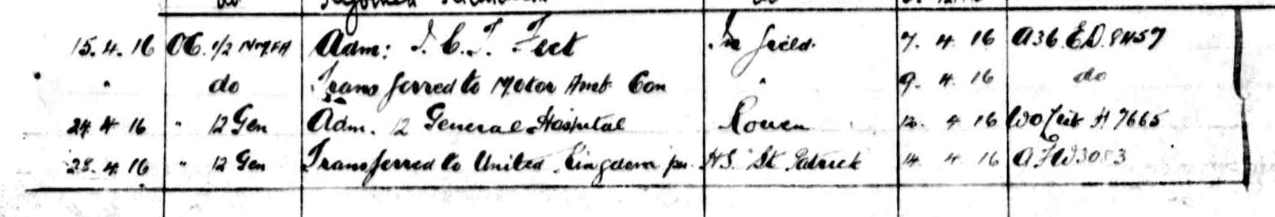 do do
15.4.16 OC. 1/2 Adm: I. C. T. Feet In field. 7. 4. 16 A36. E.D. 8457
" do Transferred to Motor Amb Con " 9. 4. 16 do
24. 4 16 " 12 Gen Adm. 12 General Hospital Rouen 12. 4 16 H 7665
28. 4 16 " 12 Gen Transferred to United Kingdom per H.S. St. Patrick 14. 4 16 AFW3083